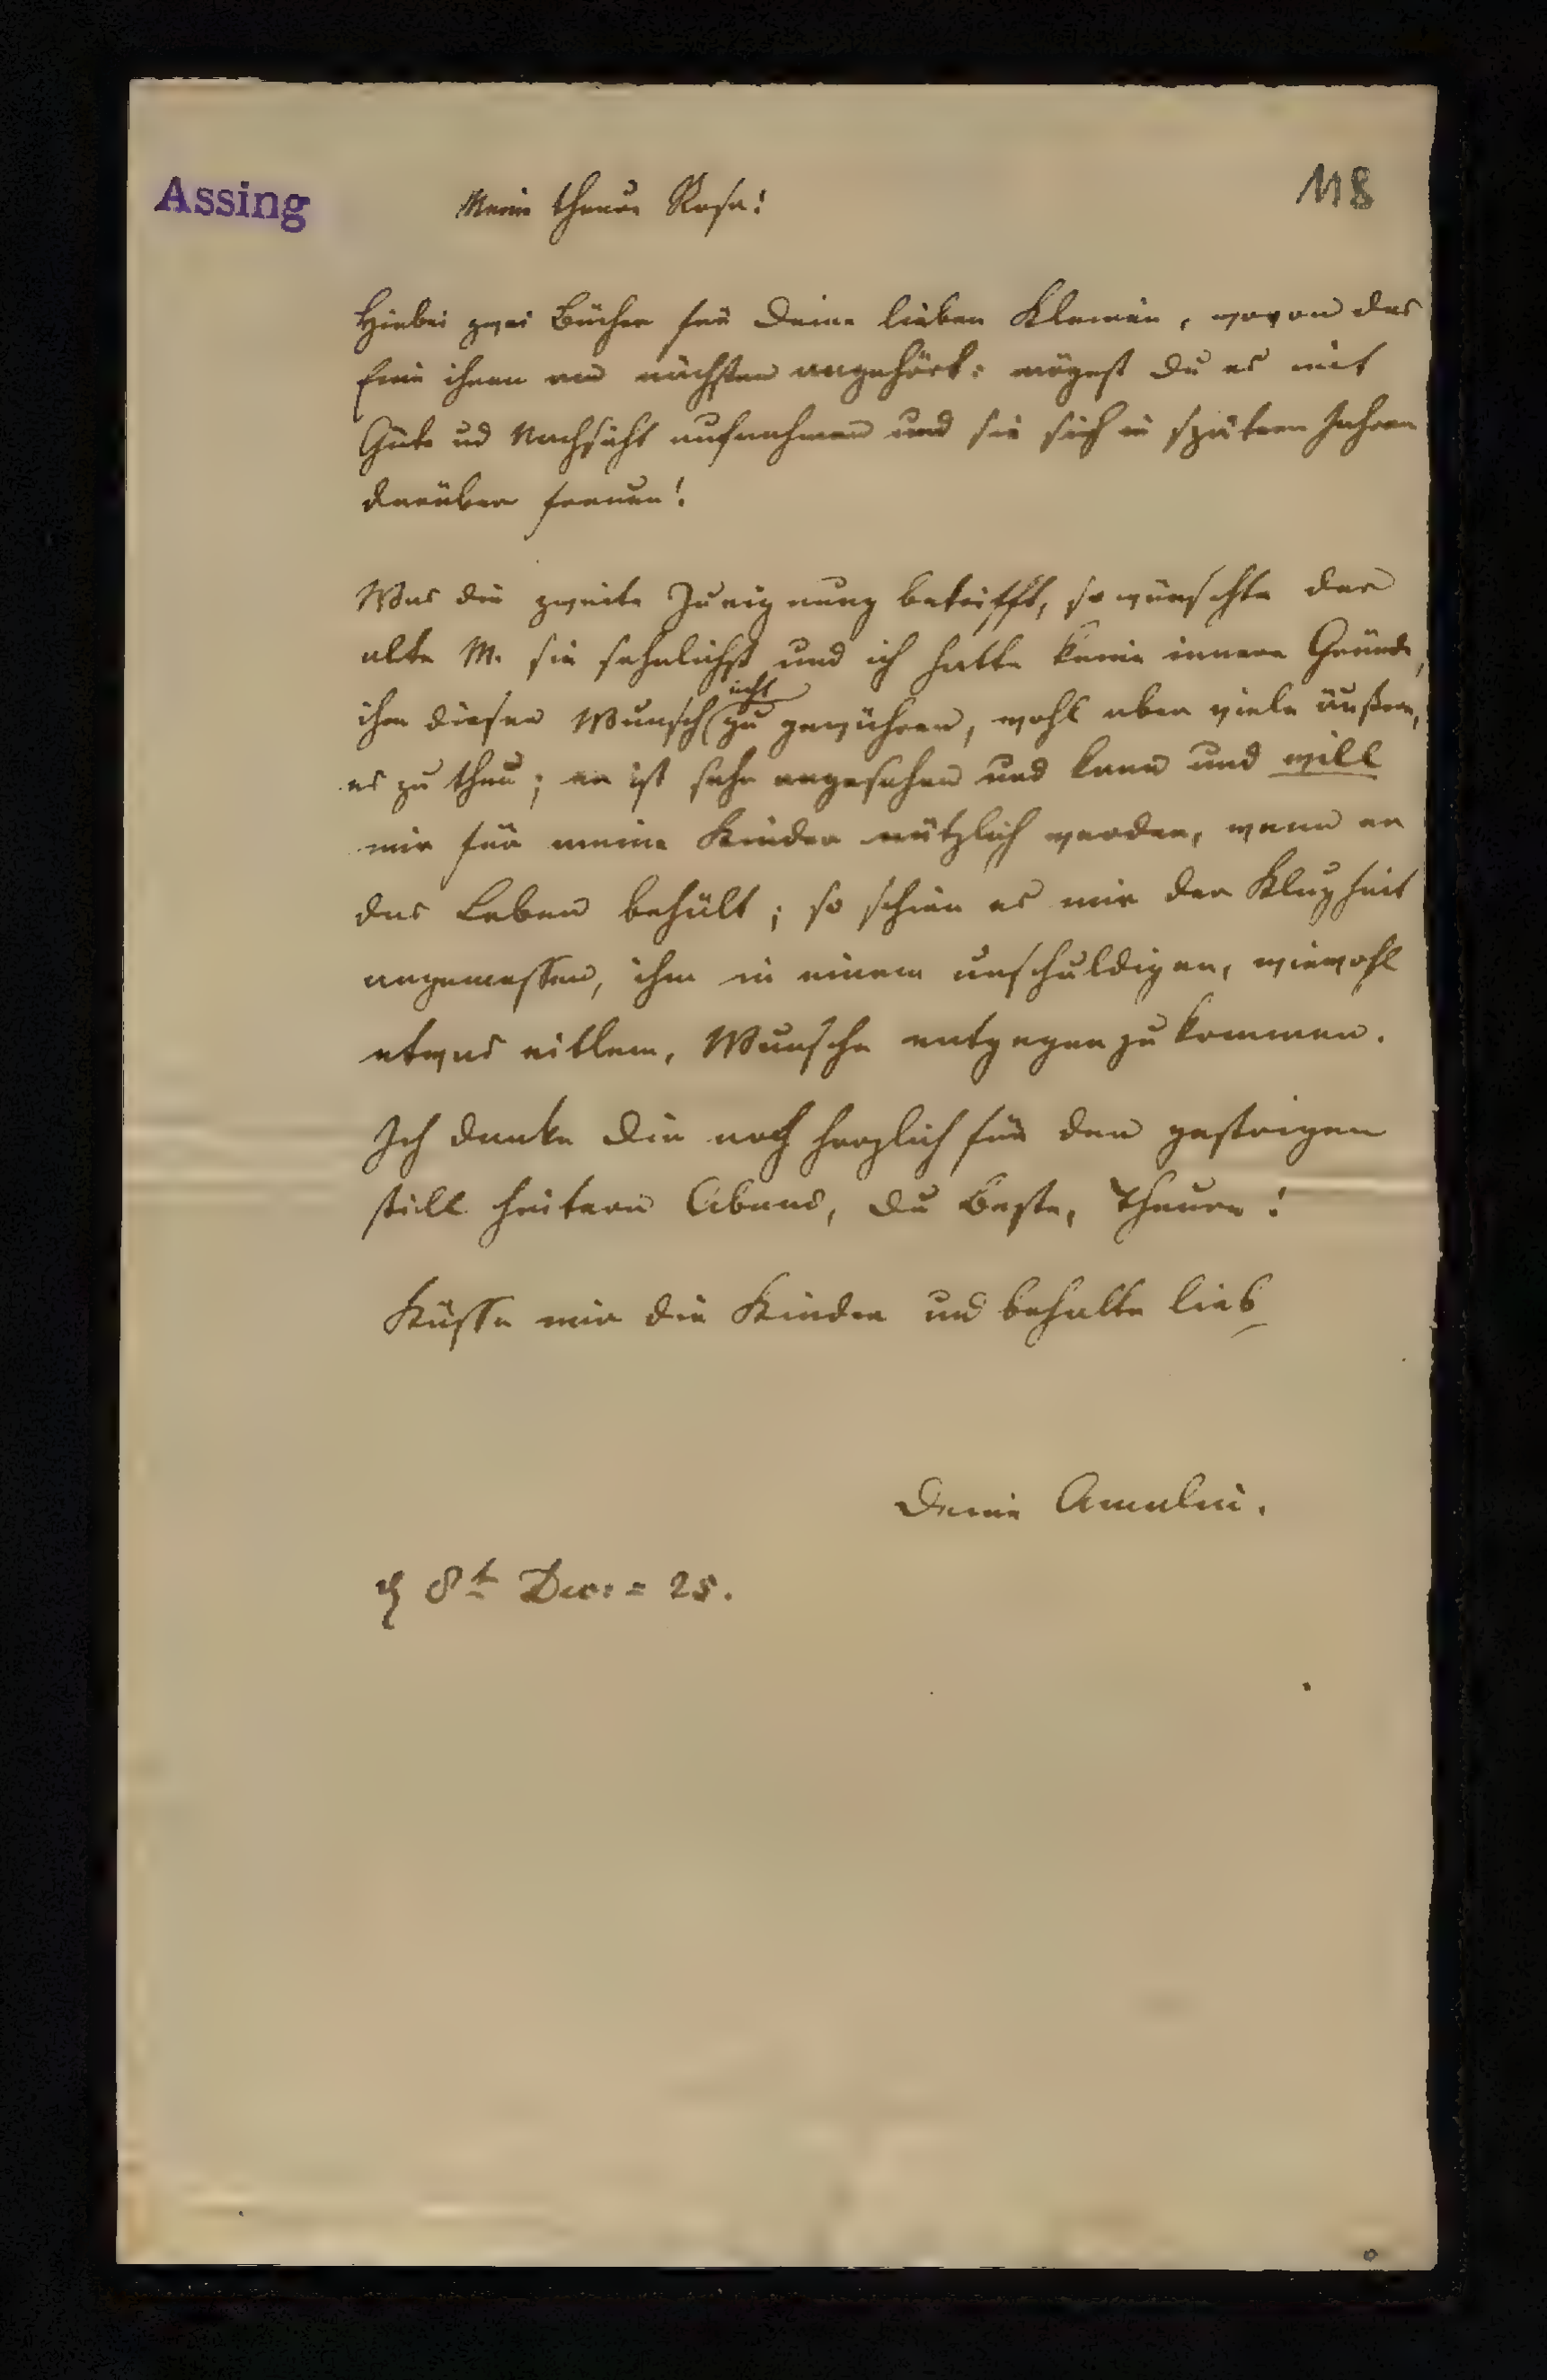 Assing
118
Meine theure Rosa!
Hierbei zwei Bücher für Deine lieben Kleinen, wovon das
Eine ihnen am nächsten angehört: mögest Du es mit
Güte und Nachsicht aufnehmen und sie sich in spätern Jahren
darüber freuen!
Was die zweite Zueignung betrifft, so wünschte der
alte M. sie sehnlichst und ich hatte keine innere Gründe,
ihm diesen Wunsch nicht zu gewähren, wohl aber viele äußere,
es zu thun; er ist sehr angesehen und kann und will
mir für meine Kinder nützlich werden, wenn er
das Leben behält; so schien es mir der Klugheit
angemessen, ihm in einem unschuldigen, wiewohl
etwas eitlem, Wunsche entgegen zu kommen.
Ich danke Dir noch herzlich für den gestrigen
still heitern Abend, Du Beste, Theure!
Küsse mir die Kinder und behalte lieb
Deine Amalia.
8t Dec: = 25.